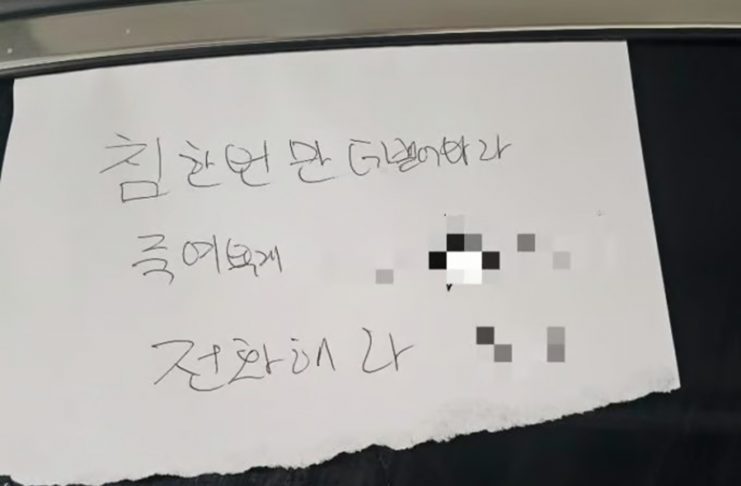 침 한번 만 더 뱉어봐라
죽여볼게
전화해라